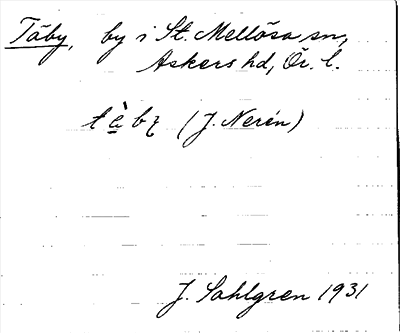 Täby, by i St. Mellösa sn,
Askers hd, Ör. l.
(J. Nerén)
J. Sahlgren 1931